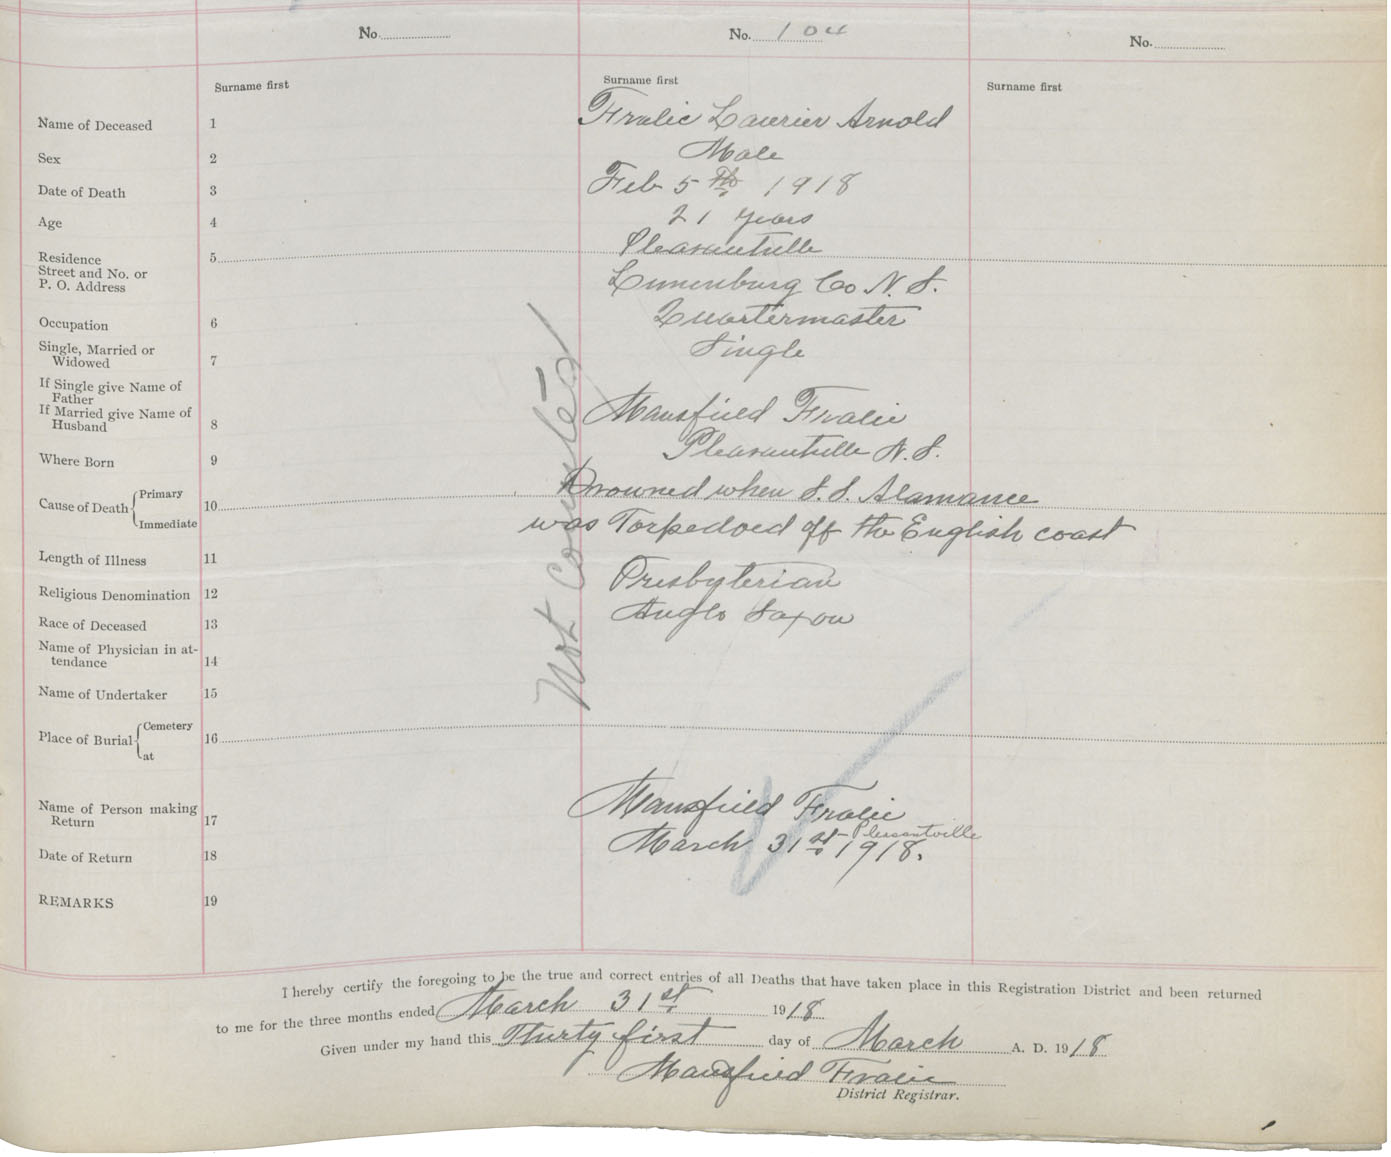 No.
No. 104
No.
Surname first
Surname first
Surname first
Name of Deceased 1 Fralic Laurier Arnold
Sex 2 Male
Date of Death 3 Feb 5th 1918
Age 4 21 years
Residence 5 Pleasantville
Street and No. or
P. O. Address Lunenburg Co N. S.
Occupation 6 Quartermaster
Single, Married or
Widowed 7 Single
If Single give Name of
Father
If Married give Name of
Husband 8 Mansfield Fralic
Where Born 9 Pleasantville N. S.
Cause of Death { Primary 10 Drowned when S. S. Alamance
Immediate was Torpedoed off the English coast
Not Counted
Length of Illness 11
Religious Denomination 12 Presbyterian
Race of Deceased 13 Anglo Saxon
Name of Physician in at-
tendance 14
Name of Undertaker 15
Place of Burial { Cemetery 16
at
Name of Person making
Return 17 Mansfield Fralic
Pleasantville
Date of Return 18 March 31st 1918.
REMARKS 19
I hereby certify the foregoing to be the true and correct entries of all Deaths that have taken place in this Registration District and been returned
to me for the three months ended March 31st 1918
Given under my hand this Thirty first day of March A. D. 1918
Mansfield Fralic
District Registrar.